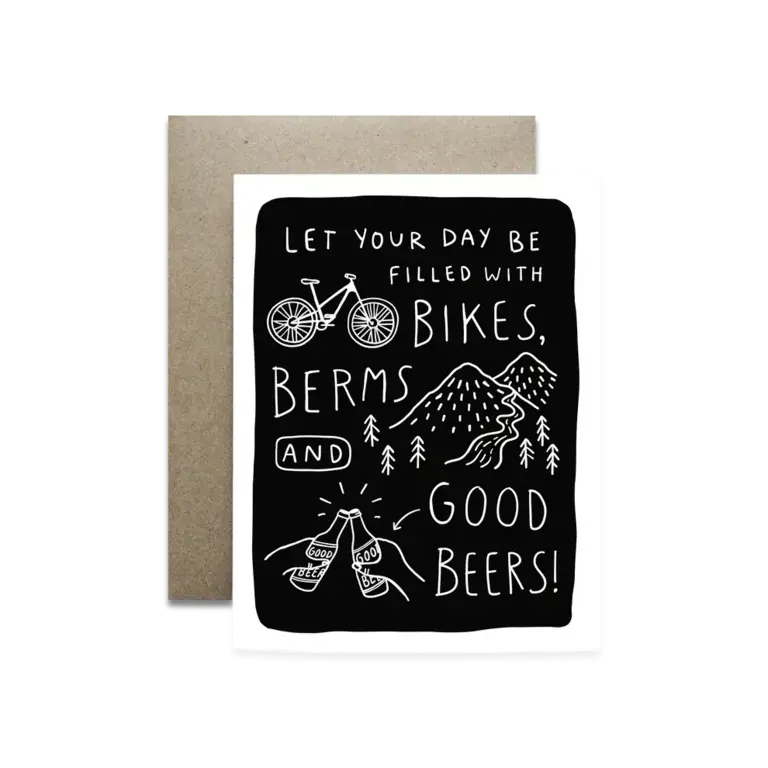 LET YOUR DAY BE
FILLED WITH
BIKES,
BERMS
AND
GOOD
BEERS!
GOOD
BEER
GOO
BE